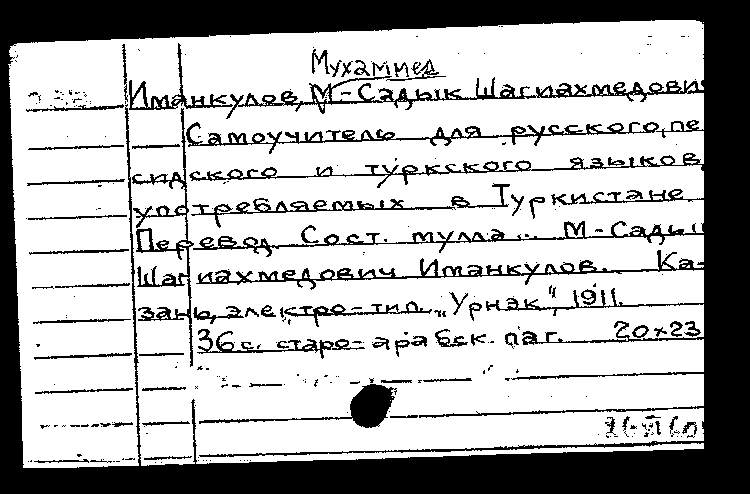 Мухаммед
Иманкулов, М-Садык Шагиахмедови
Самоучитель для русского, пе
сидского и туркского языков,
употребляемых в Туркистане
Перевод. Сост. мулла... М-Сады
Шагиахмедович Иманкулов. Ка-
зань, электро-тип. „Урнэк“, 1911.
36 с. старо-арабск. паг. 20×23
26-XI 60